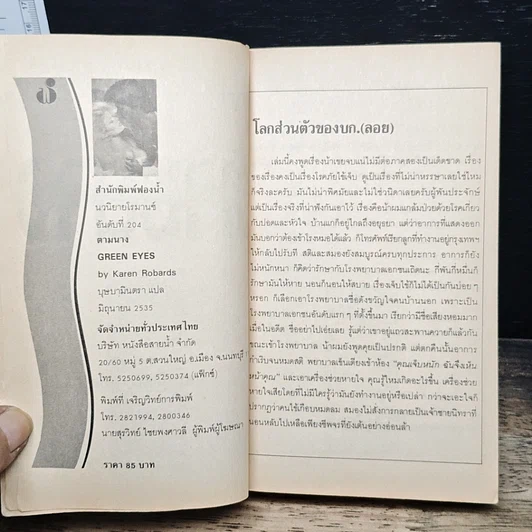 สำนักพิมพ์ฟองน้ำ
นวนิยายโรมานซ์
อันดับที่ 204
ตามนาง
GREEN EYES
by Karen Robards
นุษบามินตรา แปล
มิถุนายน 2535
จัดจำหน่ายทั่วประเทศไทย
บริษัท หนังสือสายน้ำ จำกัด
20/60 หมู่ 5 ต.สวนใหญ่ อ.เมือง จ.นนทบุรี
โทร. 5250699, 5250374 (แฟ็กซ์)
พิมพ์ที่ เจริญวิทย์การพิมพ์
โทร. 2821994, 2800346
นายสุรวิทย์ ไชยพงศาวลี ผู้พิมพ์ผู้โฆษณา
ราคา 85 บาท
โลกส่วนตัวของบก.(ลอย)
เล่มนี้คงพูดเรื่องน้าเขยจบแน่ไม่มีต่อภาคสองเป็นเด็ดขาด เรื่อง
ของเรื่องคงเป็นเรื่องโรคภัยไข้เจ็บ ดูเป็นเรื่องที่ไม่น่าหรรษาเลยใช่ไหม
ก็จริงละครับ มันไม่น่าพิศมัยและไม่ใช่วนิดาเลยครับผู้พันประจักษ์
แต่เป็นเรื่องจริงที่น่าฟังกันเอาไว้ เรื่องคือน้าผมแกล้มป่วยด้วยโรคเกี่ยว
กับปอดและหัวใจ บ้านแกก็อยู่ไกลถึงอยุธยา แต่ว่าอาการที่แสดงออก
มันบอกว่าต้องเข้าโรงหมอได้แล้ว ก็โทรศัพท์เรียกลูกที่ทำงานอยู่กรุงเทพฯ
ให้กลับไปรับที สติและสมองยังสมบูรณ์ครบทุกประการ อาการก็ยัง
ไม่หนักหนา ก็คิดว่ารักษากับโรงพยาบาลเอกชนเถิดนะ ก็พ้นกีหมื่นก็
รักษามันให้หาย นอนก็นอนให้สบาย เรื่องเจ็บไข้ก็ไม่ได้เป็นกันบ่อยๆ
หรอก ก็เลือกเอาโรงพยาบาลชื่อดังขวัญใจคนบ้านนอก เพราะเป็น
โรงพยาบาลเอกชนอันดับแรกๆ ที่ตั้งขึ้นมา เรียกว่ามีชื่อเสียงหอมมาก
เมื่อในอดีต ชื่ออย่าไปเอ่ยเลย รู้แต่ว่าเขาอยู่แถวสะพานควายก็แล้วกัน
ขณะเข้าโรงพยาบาล น้าผมยังพูดคุยเป็นปรกติ แต่ตกคืนนั้นอาการ
กำเริบจนหมดสติ พยาบาลเข็นเตียงเข้าห้อง "คุณเจ็บหนัก ฉันจึงเห็น
หน้าคุณ" และเอาเครื่องช่วยหายใจ คุณรู้ไหมเกิดอะไรขึ้น เครื่องช่วย
หายใจเสียโดยที่ไม่มีใครรู้ว่ามันยังทำงานอยู่หรือเปล่า กว่าจะเอะใจก็
ปรากฏว่าคนไข้เกือบหมดลม สมองไม่สั่งการกลายเป็นเจ้าชายนิทราที่
นอนหลับไปเหลือเพียงชีพจรที่ยังเต้นอย่างอ่อนล้า